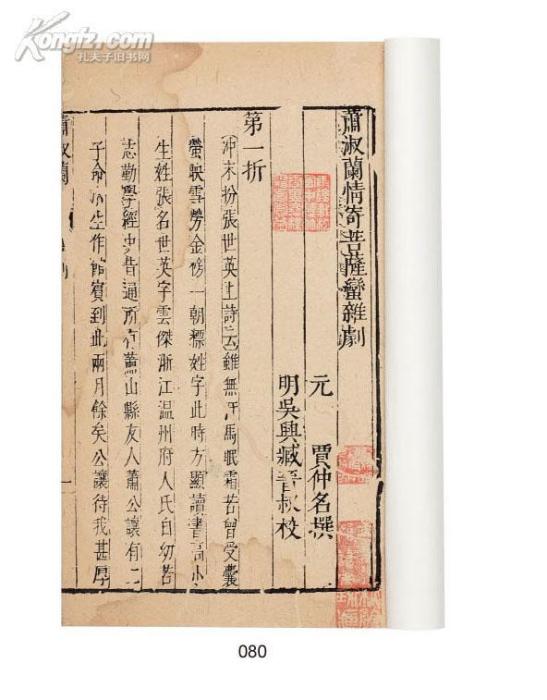 Kongfz.com
孔夫子旧书网
蕭淑蘭情寄菩薩蠻雜劇
元 賈仲名撰
明吳興臧晉叔校
第一折
冲末扮張世英上詩云雖無汗馬眠霜若曾受囊
螢映雪勞金榜一朝標姓字此時方顯讀書高小
生姓張名世英字雲傑浙江温州府人氏自幼苦
志勤學經史皆通所有蕭山縣友人蕭公讓有二
子命小生作館賓到此兩月餘矣公讓待我甚厚
蕭淑蘭
一
080